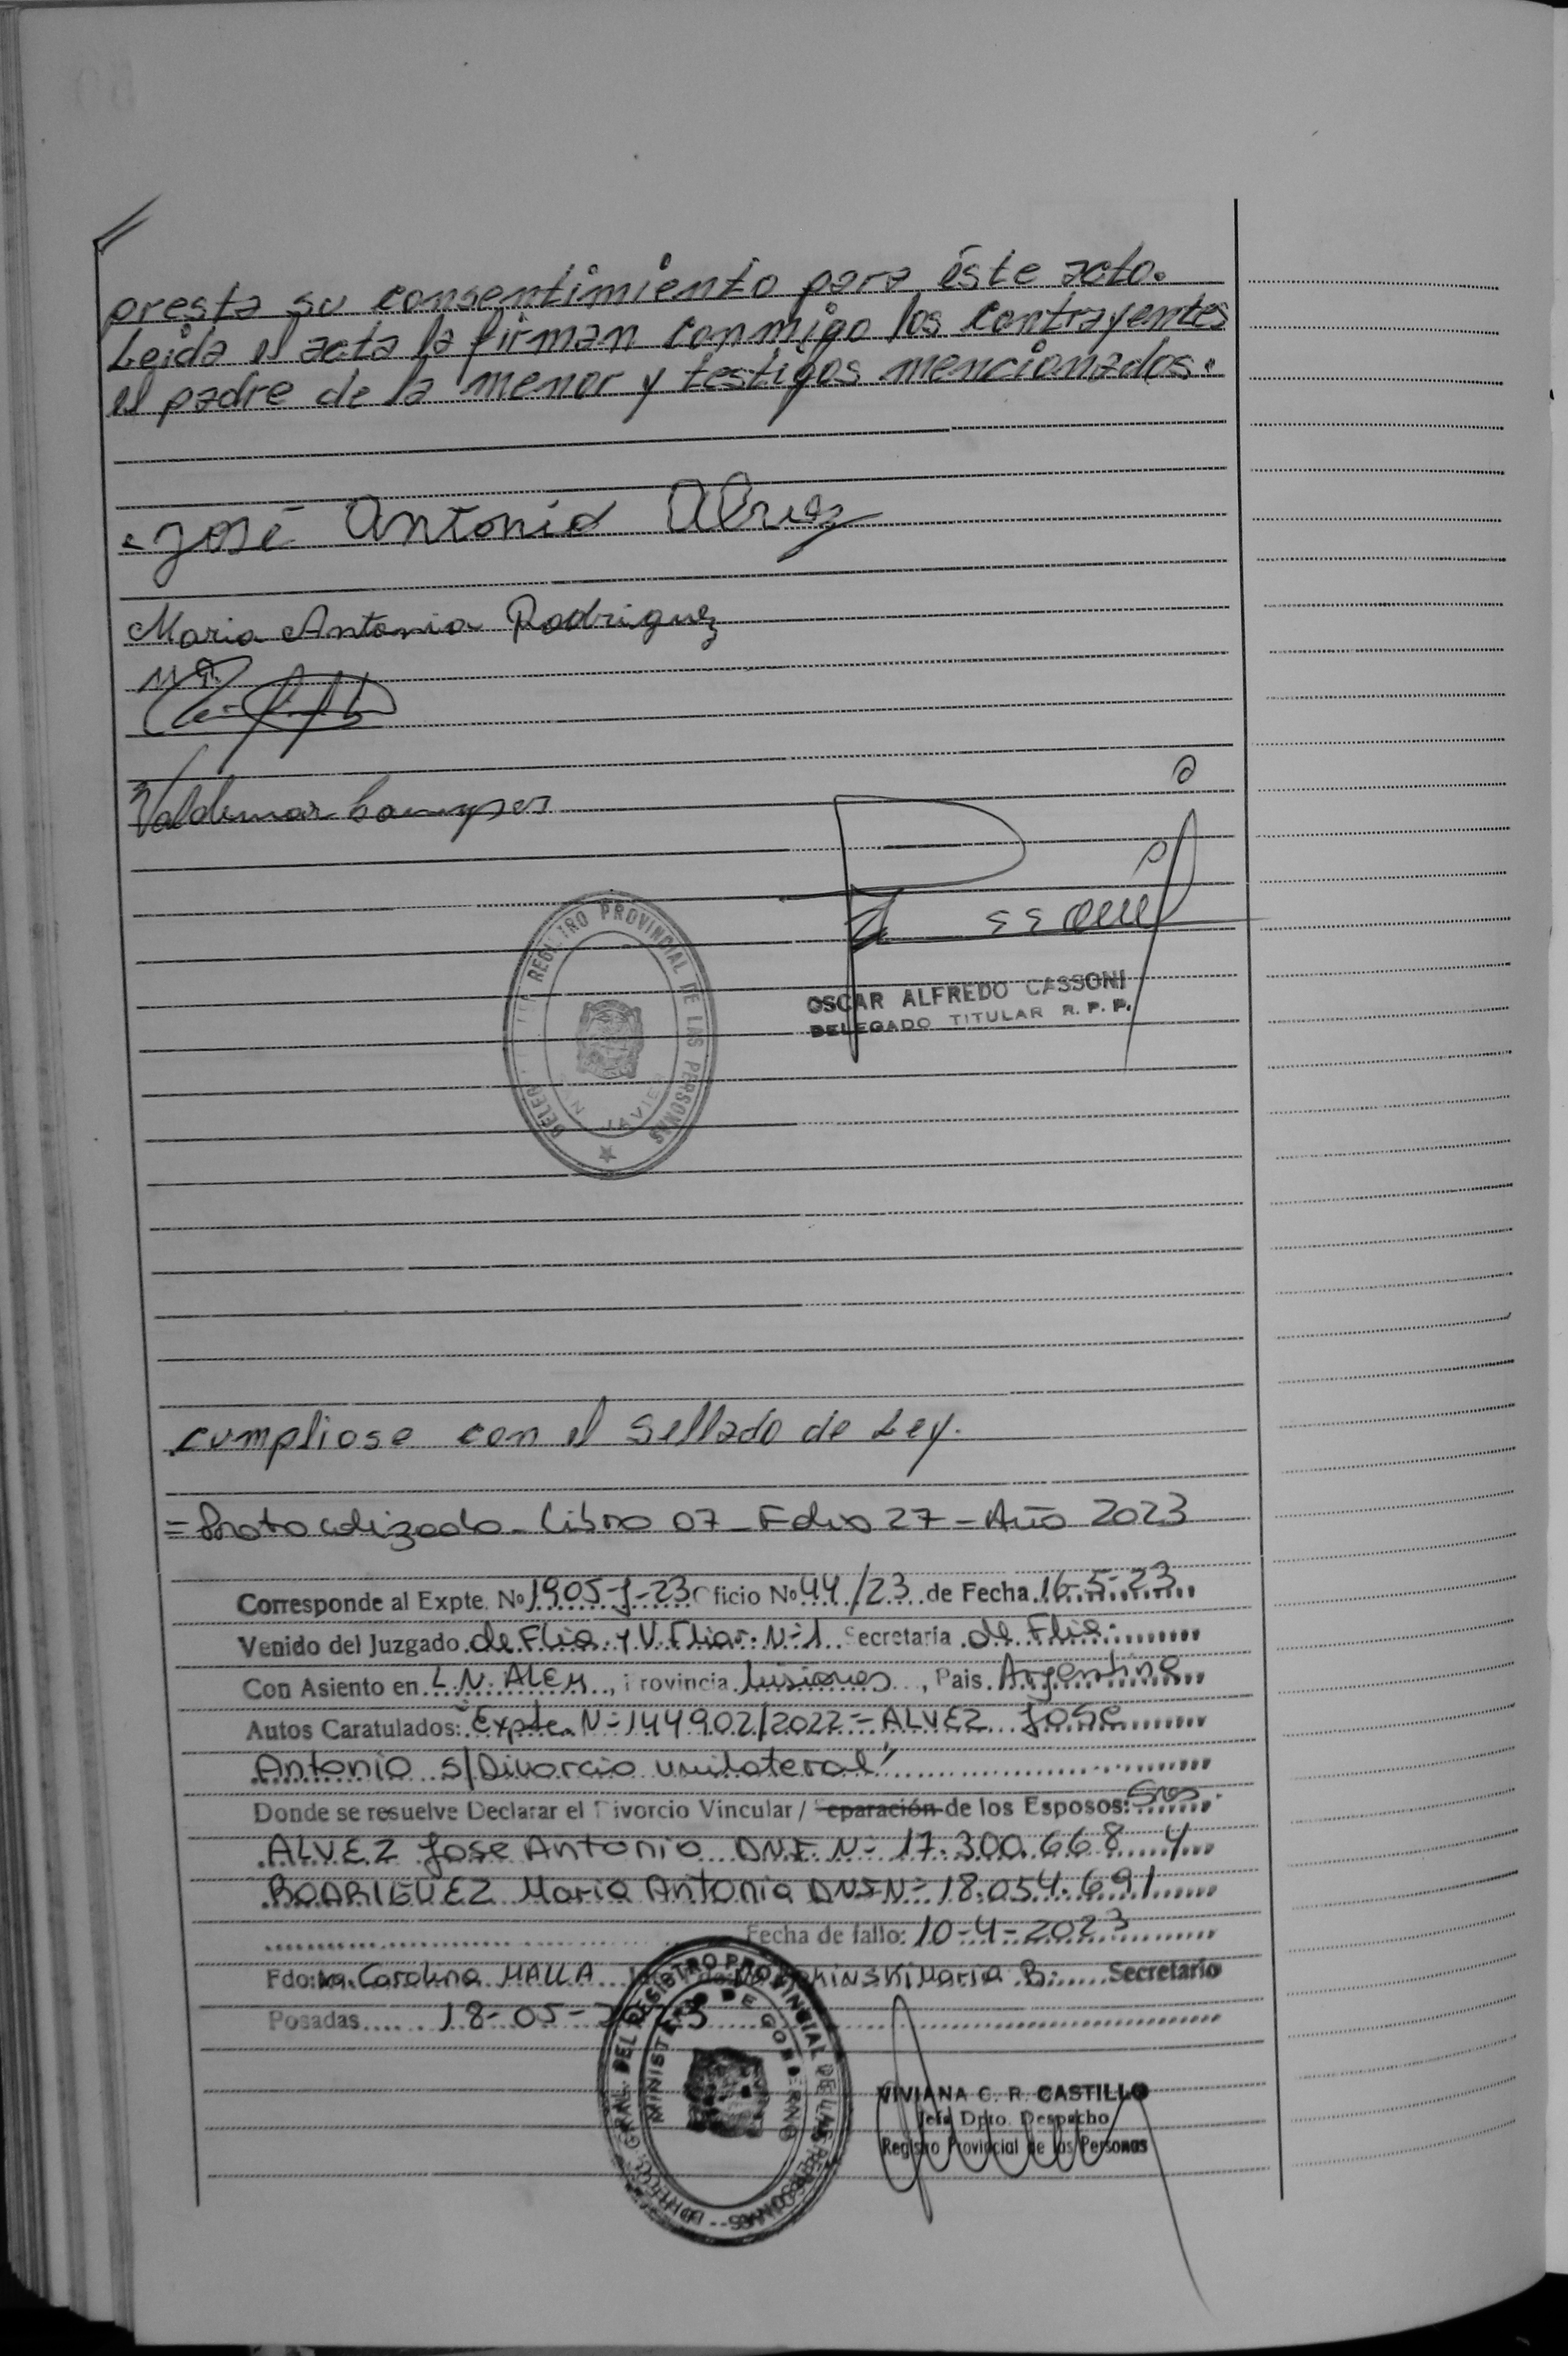 presta su consentimiento para éste acto.
Leida el acta la firman conmigo los contrayentes
el padre de la menor y testigos mencionados.
José Antonio Alvez
Maria Antonia Rodriguez
Valdemar
REGISTRO PROVINCIAL DE LAS PERSONAS
SAN JAVIER
OSCAR ALFREDO CASSONI
DELEGADO TITULAR R. P. P.
cumpliose con el sellado de Ley.
=Protocolizado-Libro 07-Folio 27-Año 2023
Corresponde al Expte. Nº 1905-J-23 Oficio Nº 44/23 de Fecha 16-5-23
Venido del Juzgado de Flia. y V. Fliar. Nº1 Secretaría de Flia.
Con Asiento en L.N. ALEM, Provincia Misiones, Pais Argentina
Autos Caratulados: "Expte. Nº 144902/2022 = ALVEZ Jose
Antonio s/Divorcio unilateral"
Donde se resuelve Declarar el Divorcio Vincular / Separación de los Esposos: Sres.
ALVEZ Jose Antonio DNI Nº 17.300.668 y
RODRIGUEZ Maria Antonia DNI Nº 18.054.691
Fecha de fallo: 10-4-2023
Fdo: Carolina MALLA Maria B. Secretario
Posadas 18-05-2023
DIRECC. GRAL. DEL REGISTRO PROVINCIAL DE LAS PERSONAS
MINISTERIO DE GOBIERNO
VIVIANA C. R. CASTILLO
Jefa Dpto. Despacho
Registro Provincial de las Personas